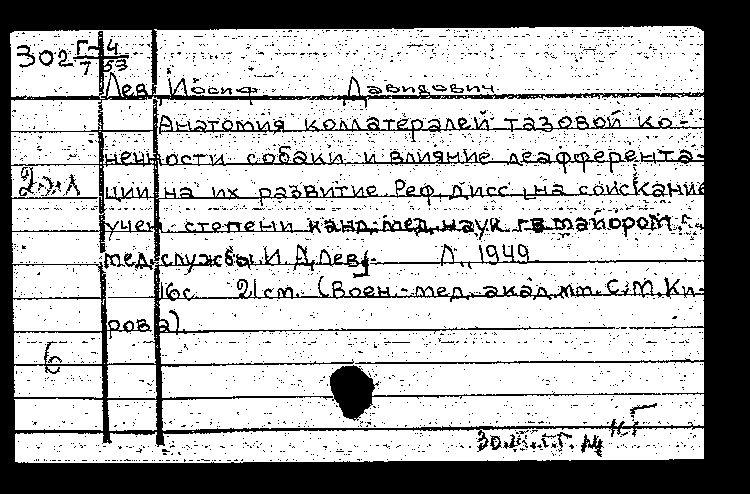 302 Г-4
7 53
Лев, Иосиф Давидович
Анатомия коллатералей тазовой ко-
нечности собаки и влияние деафферента-
2 экз
ции на их развитие. Реф. дисс. на соискание
учен. степени канд. мед. наук майором
мед. службы И. Д. Лев. Л., 1949
16с 21см. (Воен.-мед. акад. им. С. М. Ки-
рова).
6